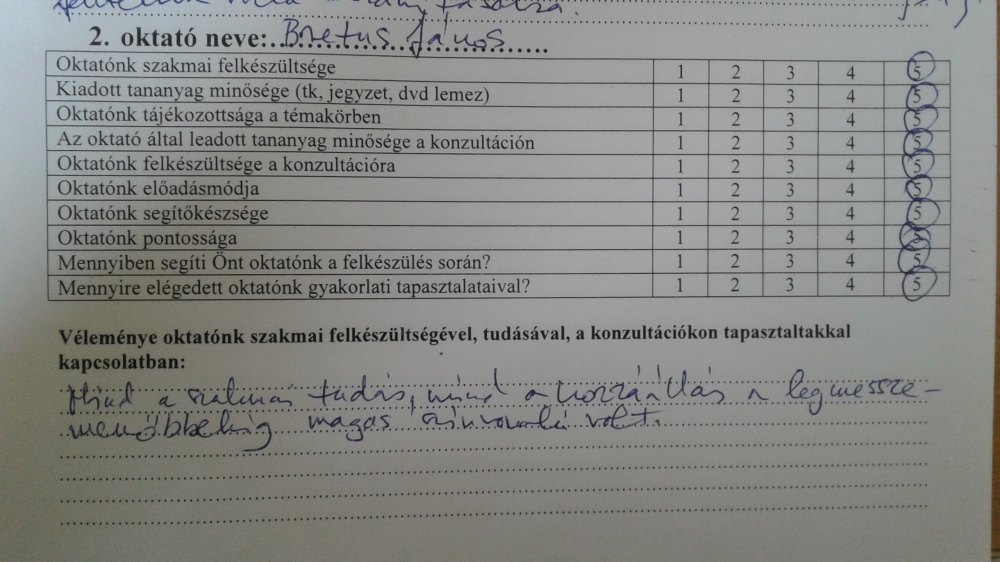 2. oktató neve: Bretus János
Oktatónk szakmai felkészültsége 1 2 3 4 5
Kiadott tananyag minősége (tk, jegyzet, dvd lemez) 1 2 3 4 5
Oktatónk tájékozottsága a témakörben 1 2 3 4 5
Az oktató által leadott tananyag minősége a konzultáción 1 2 3 4 5
Oktatónk felkészültsége a konzultációra 1 2 3 4 5
Oktatónk előadásmódja 1 2 3 4 5
Oktatónk segítőkészsége 1 2 3 4 5
Oktatónk pontossága 1 2 3 4 5
Mennyiben segíti Önt oktatónk a felkészülés során? 1 2 3 4 5
Mennyire elégedett oktatónk gyakorlati tapasztalataival? 1 2 3 4 5
Véleménye oktatónk szakmai felkészültségével, tudásával, a konzultációkon tapasztaltakkal
kapcsolatban:
Mind a szakmai tudás, mind a hozzáállás a legmessze-
menőbbekig magas színvonalú volt.